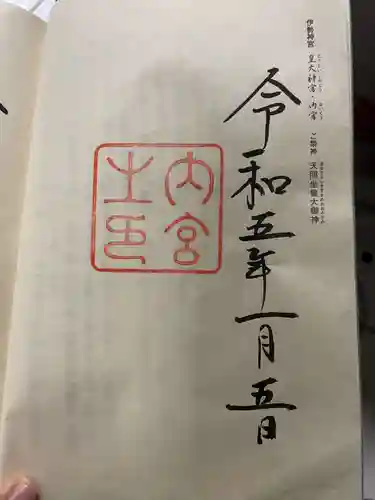 伊勢神宮 皇大神宮・内宮 ご祭神 天照坐皇大御神
令和五年一月五日
内宮
之印